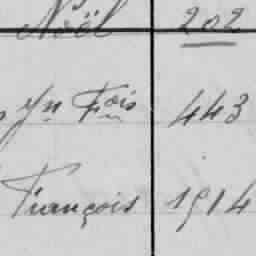 Noël 202
Jn Fois 443
François 1914